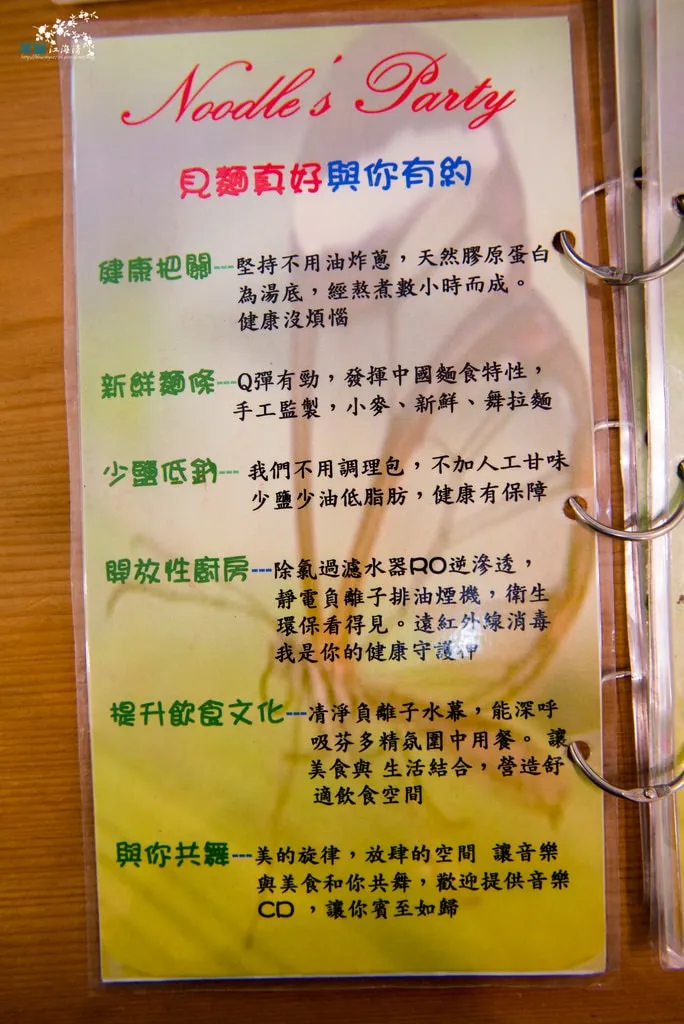 江海清
Noodle's Party
見麵真好與你有約
健康把關---堅持不用油炸蔥，天然膠原蛋白
為湯底，經熬煮數小時而成。
健康沒煩惱
新鮮麵條---Q彈有勁，發揮中國麵食特性，
手工監製，小麥、新鮮、舞拉麵
少鹽低鈉--- 我們不用調理包，不加人工甘味
少鹽少油低脂肪，健康有保障
開放性廚房---除氣過濾水器RO逆滲透，
靜電負離子排油煙機，衛生
環保看得見。遠紅外線消毒
我是你的健康守護神
提升飲食文化---清淨負離子水幕，能深呼
吸芬多精氛圍中用餐。 讓
美食與 生活結合，營造舒
適飲食空間
與你共舞---美的旋律，放肆的空間 讓音樂
與美食和你共舞，歡迎提供音樂
CD ，讓你賓至如歸